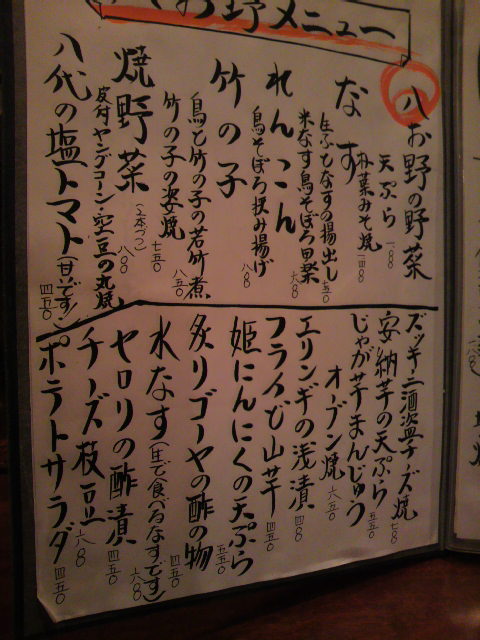 お野メニュー
八お野の野菜
天ぷら 一八〇
みそ焼 一四八〇
なす
生ふとなすの揚出し 五〇
米なす鳥そぼろ田楽 六八〇
れんこん
鳥そぼろ挟み揚げ 八八〇
竹の子
鳥と竹の子の若竹煮 八五〇
竹の子の姿焼 七五〇
焼野菜 (2本づつ) 八八〇
皮付ヤングコーン・空豆の丸焼
八代の塩トマト(甘いです) 四五〇
ズッキーニ酒盗チーズ焼 七八〇
安納芋の天ぷら 五五〇
じゃが芋まんじゅう
オーブン焼 六五〇
エリンギの浅漬 四八〇
フライド山芋 四五〇
姫にんにくの天ぷら 五五〇
炙りゴーヤの酢の物 四五〇
水なす(生で食べるなすです) 六八〇
セロリの酢漬 四五〇
チーズ枝豆 六八〇
ポテトサラダ 四五〇